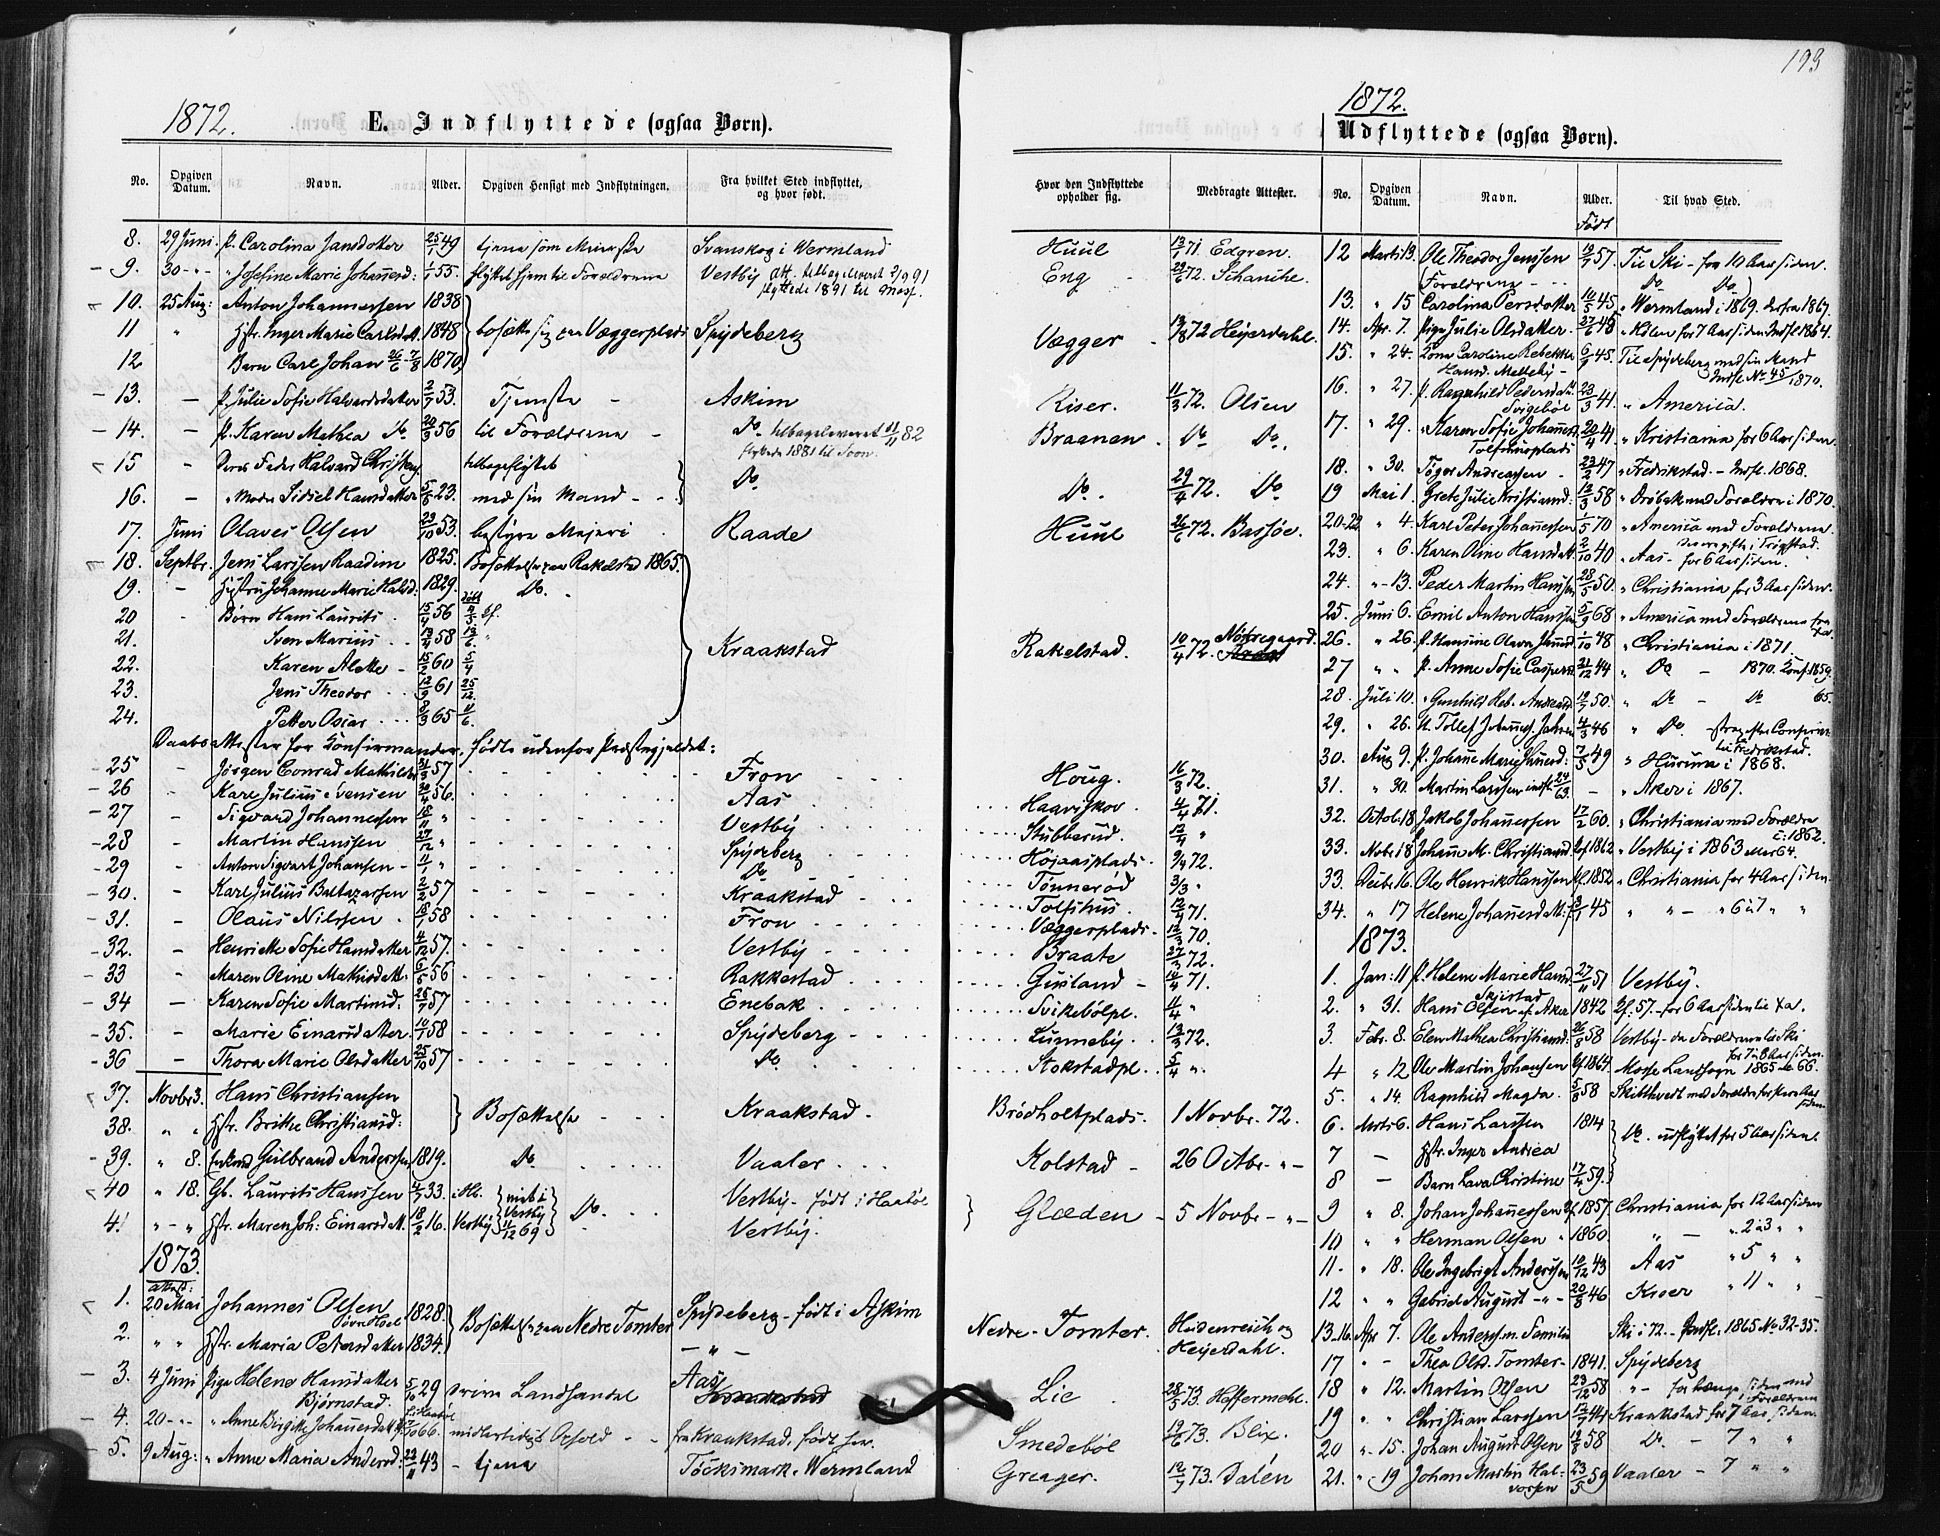 193
1872.
E. Indflyttede (ogsaa Børn).
No. Opgiven Datum. Navn. Alder. Opgiven Hensigt med Indflytningen. Fra hvilket Sted indflyttet, og hvor født.
8. 29 Juni. p. Carolina Jansdotter 25/1 49 tjene som Svanskog i Wermland
9. 30 - " - " Josefine Marie Johannesd: 1/1 55. flyttet hjem til Forældrene Vestby att. tilbageleveret 91
flyttede 1891 til Moss.
10. 25 Aug: Anton Johannessen 1838
11 " Hstr. Inger Marie Carlsdatt. 1848 bosætte sig paa Væggerplads Spydeberg
12 Barn Carl Johan 26/6 - 7/8 1870
13. - p. Julie Sofie Halvorsdatter 2/7 53. Tjeneste - Askim
14. - p. Karen Mathea Do 20/3 56 til Forældrene - Do tilbageleveret 82
flyttede 1881 til Soon.
15 - Deres Fader Halvard Christens. tilbageflyttet
16. - " Moder Sidsel Hansdatter 5/6 23. med sin Mand - - Do
17. Juni Olaves Olsen 23/10 53. bestyre Mejeri Raade
18. Septbr. Jens Larssen Raadim 1825. Bosættelse paa Rakelstad 1865.
19. - Hustru Johanne Marie Halvd. 1829. Do.
20 - Børn Hans Laurits 15/4 56
21. Sven Marius 13/4 58
22. Karen Alette 15/2 60 5/4 Kraakstad
23. Jens Theodor 12/9 61 25/12.
24. Petter Oscar 8/3 65 11/6.
Daabsattester for Konfirmander, fødte udenfor Præstegjeldet:
25 - Jørgen Conrad Mathilde 57 Fron
26 - Karl Julius Svensen 30/4 56. Aas
27 - Sigvard Johannessen " Vestby
28 - Martin Hanssen 27/12 " Spydeberg
29 - Anton Sigvart Johansen - 11/1 " Do
30. - Karl Julius Baltazarsen 2/2 57 Kraakstad
31. - Olaus Nilssen 18/1 58 Fron
32. - Henriette Sofie Hansdatter 4/12 57. Vestby
33 - Maren Oline Mathisdatt. 6/5 56 Rakkestad
34 - Karen Sofie Martinsd. 25/7 57 Enebak
35. - Marie Einarsdatter 10/1 58 Spydeberg
36 - Thora Marie Olsdatter 25/10 57 Do
37. Novbr 3. Hans Christiansen
38. " " Hstr. Britte Christiansd: Bosættelse Kraakstad
39. " 8. Gulbrand Anderssen 1819. Do Vaaler
40 " 18. Gb. Laurits Hanssen 4/7 33. gift i Vestby 11/12 69 Do Vestby - født i Haabøl
41 " - " Hstr. Maren Joh: Einarsdatt. 18/2 16. Vestby Vestby.
1873.
1. 20 Mai Johannes Olsen 1828. Bosættelse paa Nedre Tomter Spydeberg - født i Askim
2. " " Hstr. Maria Petersdatter 1834. - " -
3. 4 Juni Pige Helene Hansdatter 5/10 29 drive Landhandel Aas
Bjørnstad.
4. 20 - " - " Anne Birgitte Johannesdatt. 66. midlertidigt Ophold - - fra Kraakstad. født her.
5. 9 Aug: " Anne Maria Andersd: 22/11 43 - tjene Töcksmark. Wermland
Hvor den Indflyttede opholder sig. Medbragte Attester.
Huul 13/7 71. Edgren.
Eng 72. Schanche.
Vægger 72 Heyerdahl.
Riser. 11/3 72. Olsen
Braanen Do Do.
Do. 29/4 72. Do
Huul 26/6 72. Bassøe.
Rakelstad. 10/4 72. Nörregaard.
Houg. 16/3 72.
Haaviskov 4/4 71.
Stubberud. 12/4 "
Højaasplads 9/4 72.
Tönnerød 3/3 "
Tolfshus. 12/4 71.
Væggerplads 12/3 70.
Braate 72.
Guisland 14/4 71.
Svikebölpl. 11/4 "
Lunneby 13/3 72.
Stokstadpl. 5/4 "
Brödholtplads. 1 Novbr. 72.
Kolstad - 26 Octbr - " -
Glæden - 5 Novbr - " -
Nedre - Tomter. Heidenreich og Heyerdahl.
Lie 28/5 73. Haffermehl.
Smedeböl 19/6 73. Blix.
Greager. 19/7 73. Dalén
1872.
Udflyttede (ogsaa Børn).
No. Opgiven Datum. Navn. Alder. Til hvad Sted.
Født
12 Marts 13. Ole Theodor Jenssen 57. Til Ski - for 10 Aar siden.
Forældrene - - - Do Do
13. " 15 Carolina Persdotter 10/5 45. " Wermland i 1869. derfra 1867.
14. Apr. 7. Pige Julie Olsdatter 27/6 48 " Kolen for 7 Aar siden Indfl 1864.
15. " 24. Kone Caroline Rebekka 6/9 45. Til Spydeberg med sin Mand
Indfl No 45/1870.
16. " 27. p. Ragnhild Pedersdatt. 23/3 41. " America.
Svigeböl
17. " 29. " Karen Sofie Johannesd. 20/4 41 " Kristiania for 6 Aar siden.
18. " 30. Töger Andreassen 23/2 47 " Fredrikstad. - Indfl. 1868.
19 Mai 1. Grete Julie Kristiansd. 12/3 58 " Dröbak med Forældre i 1870.
20-22 " 4. Karl Peter Johannessen 1/5 70 " America med Forældrene.
23. " 6. Karen Oline Hansdatt. 2/10 40 " Aas - for 6 Aar siden.
24. " - 13. Peder Martin Hanssen 28/5 50 " Christiania for 3 Aar siden.
25. Juni 6. Emil Anton Hanssen 5/9 68 " America med Forældrene fra Xa.
26. " 26. p. Hansine Olava 1/10 48 " Christiania i 1871.
27 " " p. Anne Sofie Caspersd. 21/12 44 " Do - 1870. Konf. 1859.
28. Juli 10. " Gunhild Reb. Andreasd. 19/7 50. " Do - Do 65.
29. " 26. U. Tollef Johannes Johns. 4/3 46 " Do. strax efter Confirm.
til Fredrikstad.
30. Aug 9. p. Johanne Marie 7/5 49 " Hurum i 1868.
31. " 30. Martin Larssen indfl. 24/63. - " Aker i 1867.
32. Octob. 18 Jakob Johannessen 17/2 60. " Christiania med Forældre
c: 1862.
33. Nobr 18 Johanne M. Christiansd. 1862 " Vestby i 1863 eller 64.
33. Decbr 16. Ole Henrik Hanssen 1852 " Christiania for 4 Aar siden
34. " 17 Helene Johannesd. 3/1 45 " " - " 6 à 7 " "
1873.
1. Jan: 11 p. Helene Marie Hansd. 27/11 51 Vestby.
Skjistad
2. " 31. Hans Olsen 1842 57. - for 6 Aar siden til Xa.
3. Febr. 8. Elen Mathea Christiansd. 26/8 58 Vestby - da Forældrene til Ski
for 7 à 8 Aar siden.
4 " 12 Ole Martin Johansen 1864 Mosse Landsogn 1865 el. 66.
5. " 14 Ragnhild Magda. 5/8 58 Skibthvedt med Forældre for flere Aar siden
6. Marts 6. Hans Larssen 1814 Do. udflyttet for 5 Aar siden.
7 - Hstr. Inger Andrea
8 - Barn Lava Christine 17/4 59.
9 " 8. Johan Johannessen 1857. Christiania for 12 Aar siden
10 " " Herman Olsen 1860. " - " 2 à 3 " "
11. " 18. Ole Ingebrigt Anderssen 10/12 43 Aas " 5 " "
12 " " Gabriel August - " - 20/8 46 Kroer " 11 " "
13-16. Apr 7. Ole Anderss. m. Familie Ski i 72. - Indfl. 1865 No 32-35.
17 " - Thea Olsd. Tomter - 1841. Spydeberg
18 " 12. Martin Olsen 23/12 58 " - for længe siden med Forældrene
19 " " Christian Larssen 12/7 44 Kraakstad for 7 Aar siden.
20 " - 15. Johan August Olsen 58 Do. - 7 " "
21. " - 19 Johan Martin Halvorsen 23/5 59 Vaaler - 7 " "